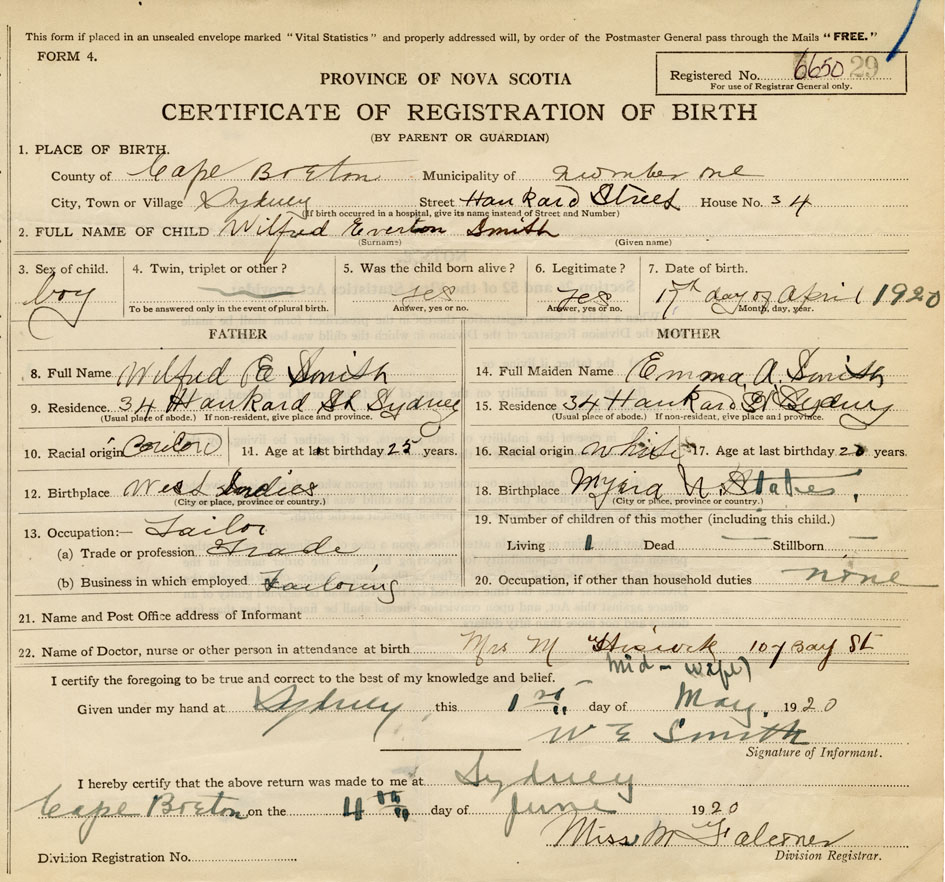 This form if placed in an unsealed envelope marked "Vital Statistics" and properly addressed will, by order of the Postmaster General pass through the Mails "FREE."
FORM 4.
Registered No. 6650 29
For use of Registrar General only.
PROVINCE OF NOVA SCOTIA
CERTIFICATE OF REGISTRATION OF BIRTH
(BY PARENT OR GUARDIAN)
1. PLACE OF BIRTH.
County of Cape Breton Municipality of number one
City, Town or Village Sydney Street Hankard Street House No. 34
(If birth occurred in a hospital, give its name instead of Street and Number)
2. FULL NAME OF CHILD Wilfred Everton Smith
(Surname) (Given name)
3. Sex of child. 4. Twin, triplet or other? 5. Was the child born alive? 6. Legitimate? 7. Date of birth.
boy yes yes 17th day of April 1920
To be answered only in the event of plural birth. Answer, yes or no. Answer, yes or no. Month, day, year.
FATHER MOTHER
8. Full Name Wilfred E Smith 14. Full Maiden Name Emma A. Smith
9. Residence 34 Hankard St Sydney 15. Residence 34 Hankard St Sydney
(Usual place of abode.) If non-resident, give place and province. (Usual place of abode.) If non-resident, give place and province.
10. Racial origin 11. Age at last birthday 25 years. 16. Racial origin white 17. Age at last birthday years.
12. Birthplace West Indies 18. Birthplace States
(City or place, province or country.) (City or place, province or country.)
13. Occupation:— Tailor 19. Number of children of this mother (including this child.)
(a) Trade or profession Trade Living 1 Dead — Stillborn —
(b) Business in which employed Tailoring 20. Occupation, if other than household duties none
21. Name and Post Office address of Informant
22. Name of Doctor, nurse or other person in attendance at birth Mrs M 107 Bay St
mid-wife)
I certify the foregoing to be true and correct to the best of my knowledge and belief.
Given under my hand at Sydney, this 1st day of May, 1920
W E Smith
Signature of Informant.
I hereby certify that the above return was made to me at Sydney
Cape Breton on the 4th day of June 1920
Miss M Falconer
Division Registration No. Division Registrar.